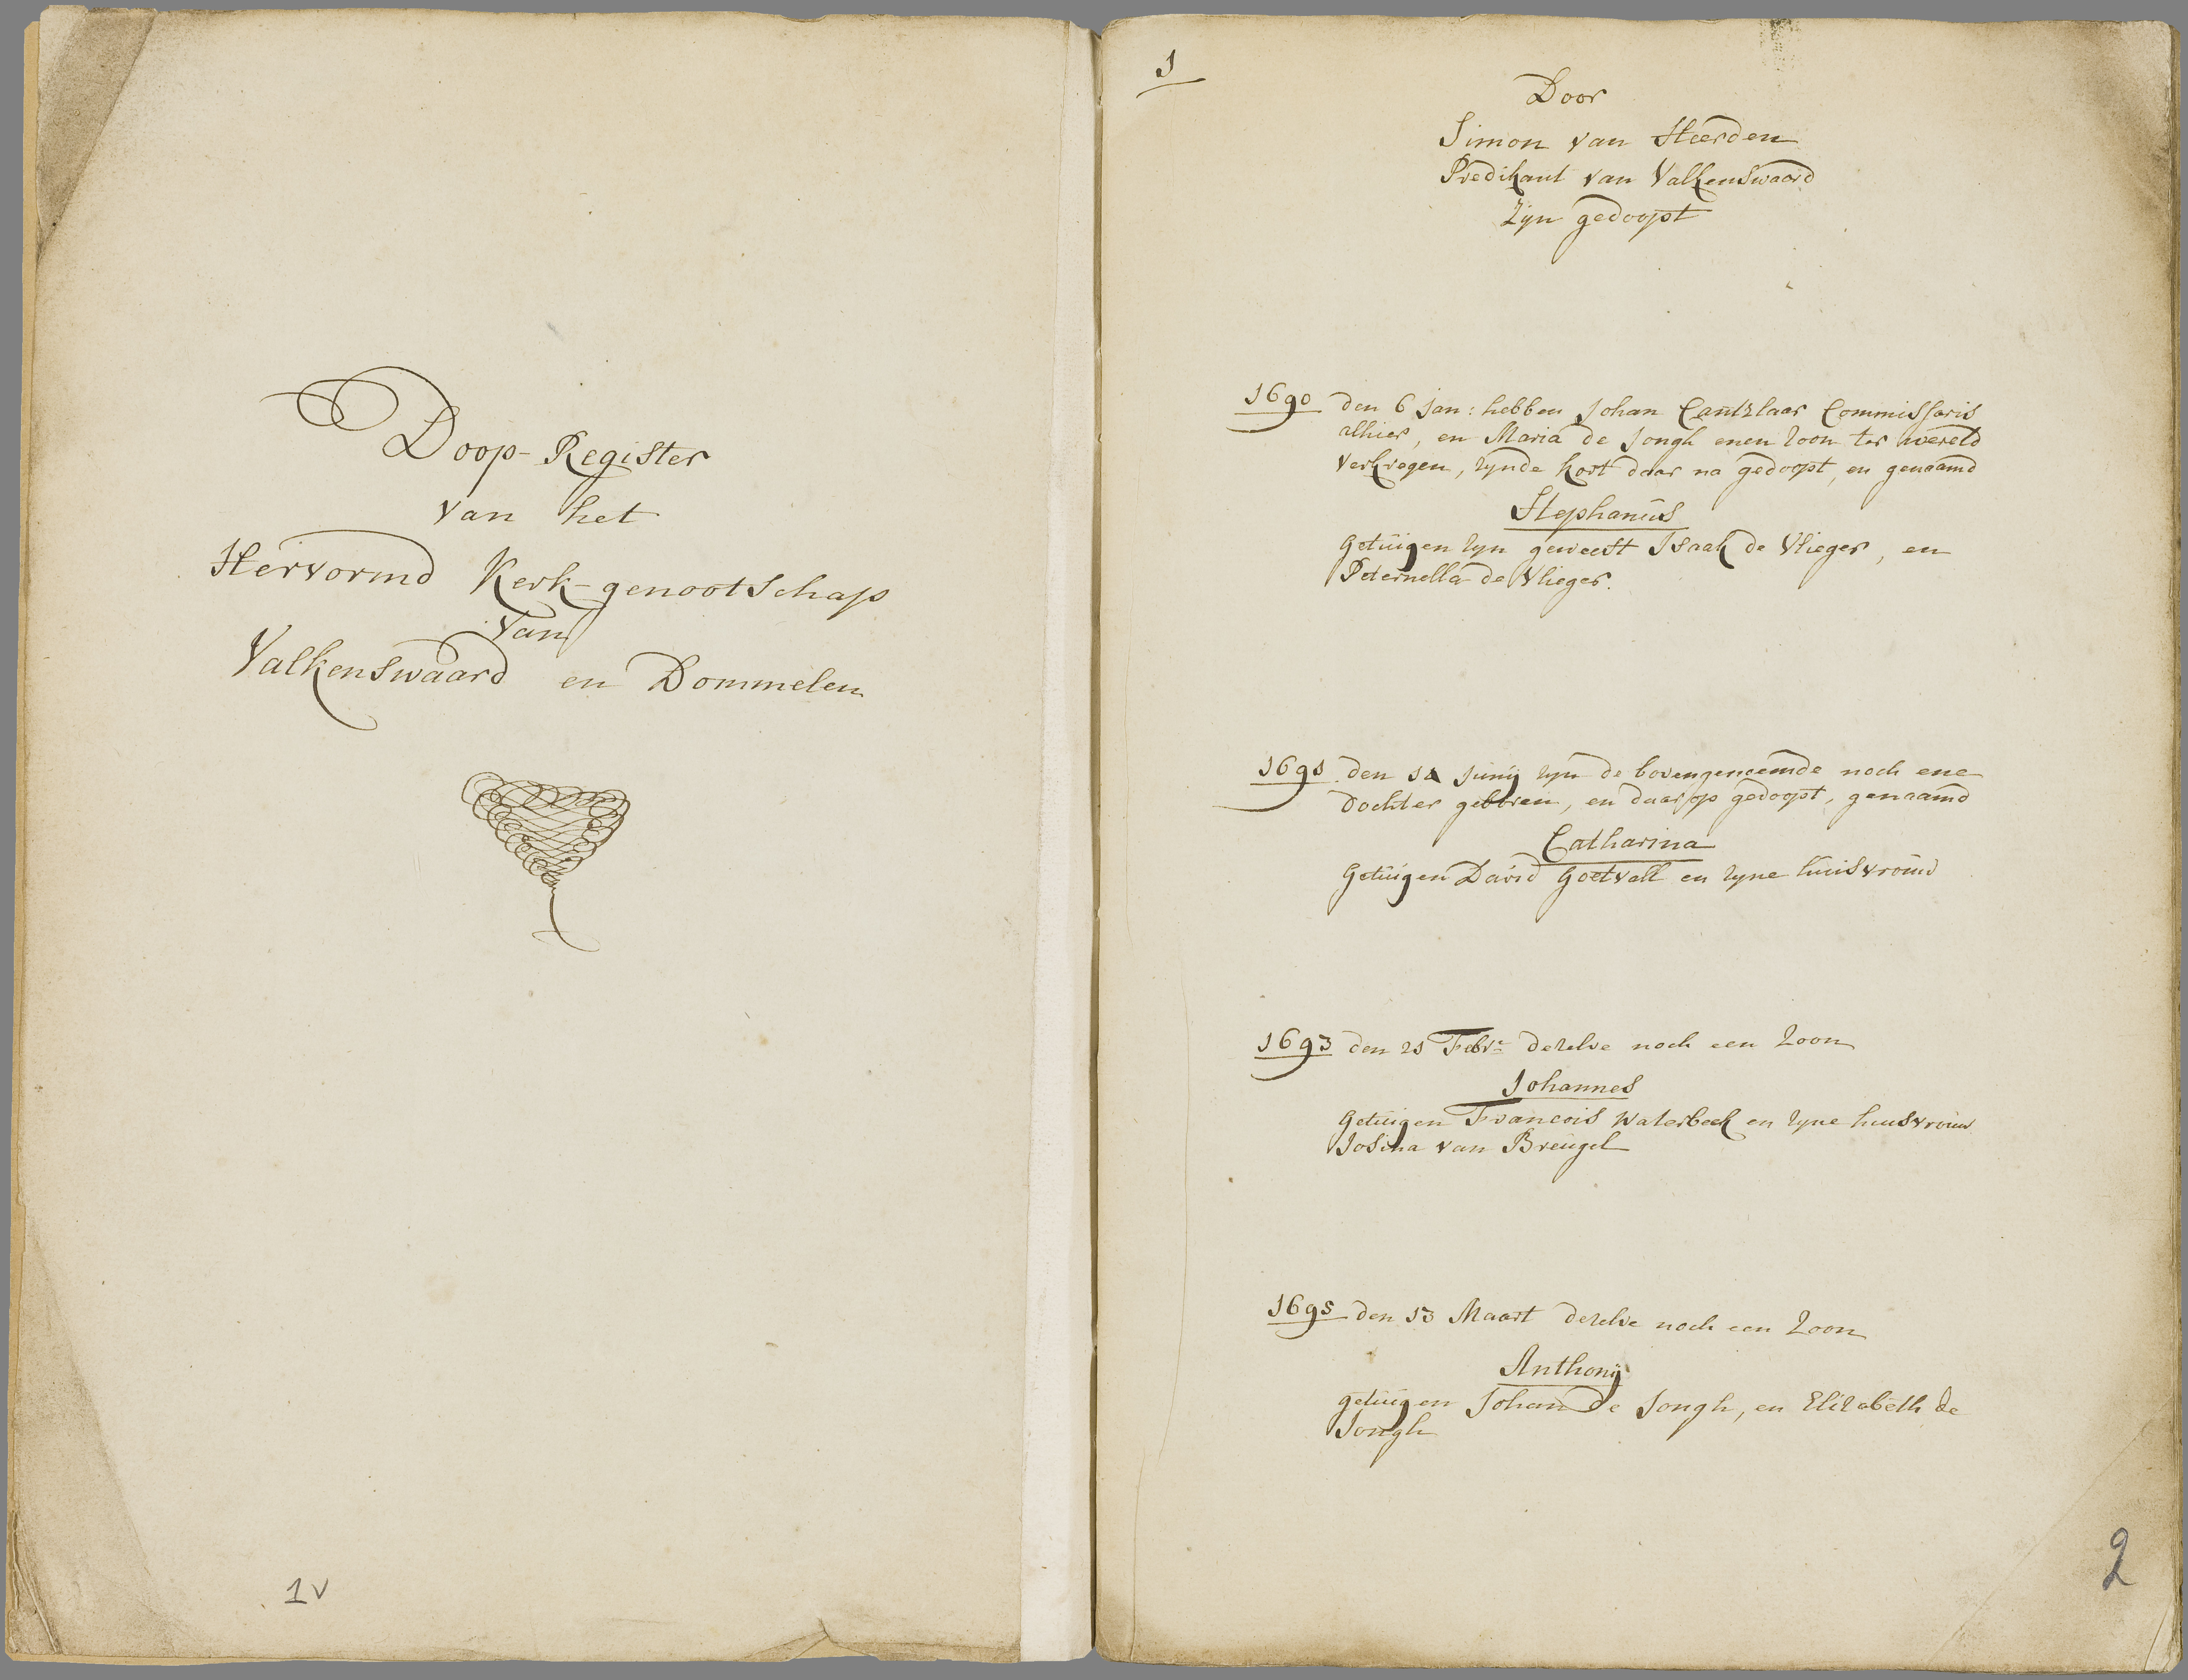 Doop-Register
van het
Hervormd Kerk-genootschap
van
Valkenswaard en Dommelen
1v
1
Door
Simon van Heerden
Predikant van Valkenswaard
zyn gedoopt
1690 den 6 Jan: hebben Johan Cantzlaar Commissaris
alhier, en Maria de Jongh enen zoon ter wereld
verkregen, zynde kort daar na gedoopt, en genaamd
Stephanus
Getuigen zyn geweest Isaak de Vlieger, en
Peternella de Vlieger.
1691 den Junij zyn de bovengenoemde noch ene
dochter geboren, en daar op gedoopt, genaamd
Catharina
Getuigen David Goetvall en zyne huisvrouw
1693 den 21 Febr: dezelve noch een zoon
Johannes
Getuigen Francois Waterbeek en zyne huisvrouw
Josina van Breugel
1695 den 13 Maart dezelve noch een zoon
Anthonij
getuigen Johan de Jongh, en Elizabeth de
Jongh
2